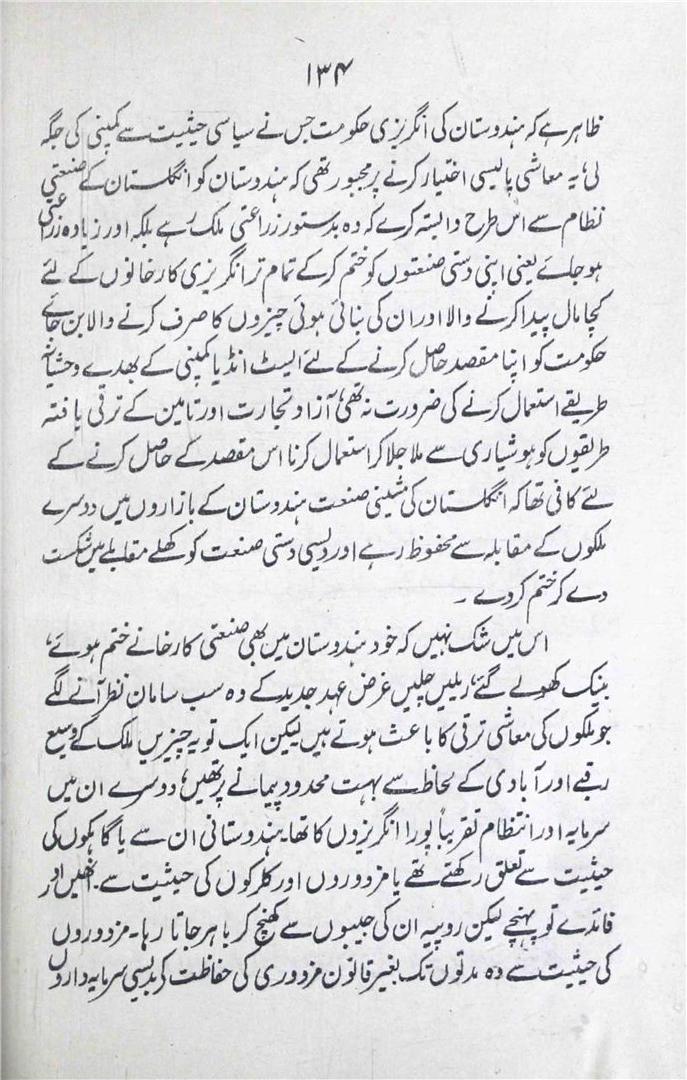 ۱۳۴
ظاہر ہے کہ ہندوستان کی انگریزی حکومت جس نے سیاسی حیثیت سے کمپنی کی جگہ
لی، یہ معاشی پالیسی اختیار کرنے پر مجبور تھی کہ ہندوستان کو انگلستان کے صنعتی
نظام سے اس طرح وابستہ کرے کہ وہ بدستور زراعتی ملک رہے بلکہ اور زیادہ زراعتی
ہو جائے یعنی اپنی دستی صنعتوں کو ختم کرکے تمام تر انگریزی کارخانوں کے لئے
کچا مال پیدا کرنے والا اور ان کی بنائی ہوئی چیزوں کا صرف کرنے والا بن جائے
حکومت کو اپنا مقصد حاصل کرنے کے لئے ایسٹ انڈیا کمپنی کے بھدے وحشیانہ
طریقے استعمال کرنے کی ضرورت نہ تھی، آزاد تجارت اور تامین کے ترقی یافتہ
طریقوں کو ہوشیاری سے ملا جلا کر استعمال کرنا اس مقصد کے حاصل کرنے کے
لئے کافی تھا کہ انگلستان کی مشینی صنعت ہندوستان کے بازاروں میں دوسرے
ملکوں کے مقابلہ سے محفوظ رہے اور دیسی دستی صنعت کو کھلے مقابلے میں شکست
دے کر ختم کر دے ۔
اس میں شک نہیں کہ خود ہندوستان میں بھی صنعتی کارخانے ختم ہوئے،
بینک کھولے گئے، ریلیں چلیں غرض عہد جدید کے وہ سب سامان نظر آنے لگے
جو ملکوں کی معاشی ترقی کا باعث ہوتے ہیں لیکن ایک تو یہ چیزیں ملک کے وسیع
رقبے اور آبادی کے لحاظ سے بہت محدود پیمانے پر تھیں، دوسرے ان میں
سرمایہ اور انتظام تقریباً پورا انگریزوں کا تھا۔ ہندوستانی ان سے یا گاہکوں کی
حیثیت سے تعلق رکھتے تھے یا مزدوروں اور کلرکوں کی حیثیت سے۔ انھیں اور
فائدے تو پہنچے لیکن روپیہ ان کی جیبوں سے کھنچ کر باہر جاتا رہا۔ مزدوروں
کی حیثیت سے وہ مدتوں تک بغیر قانون مزدوری کی حفاظت کے بدیسی سرمایہ داروں